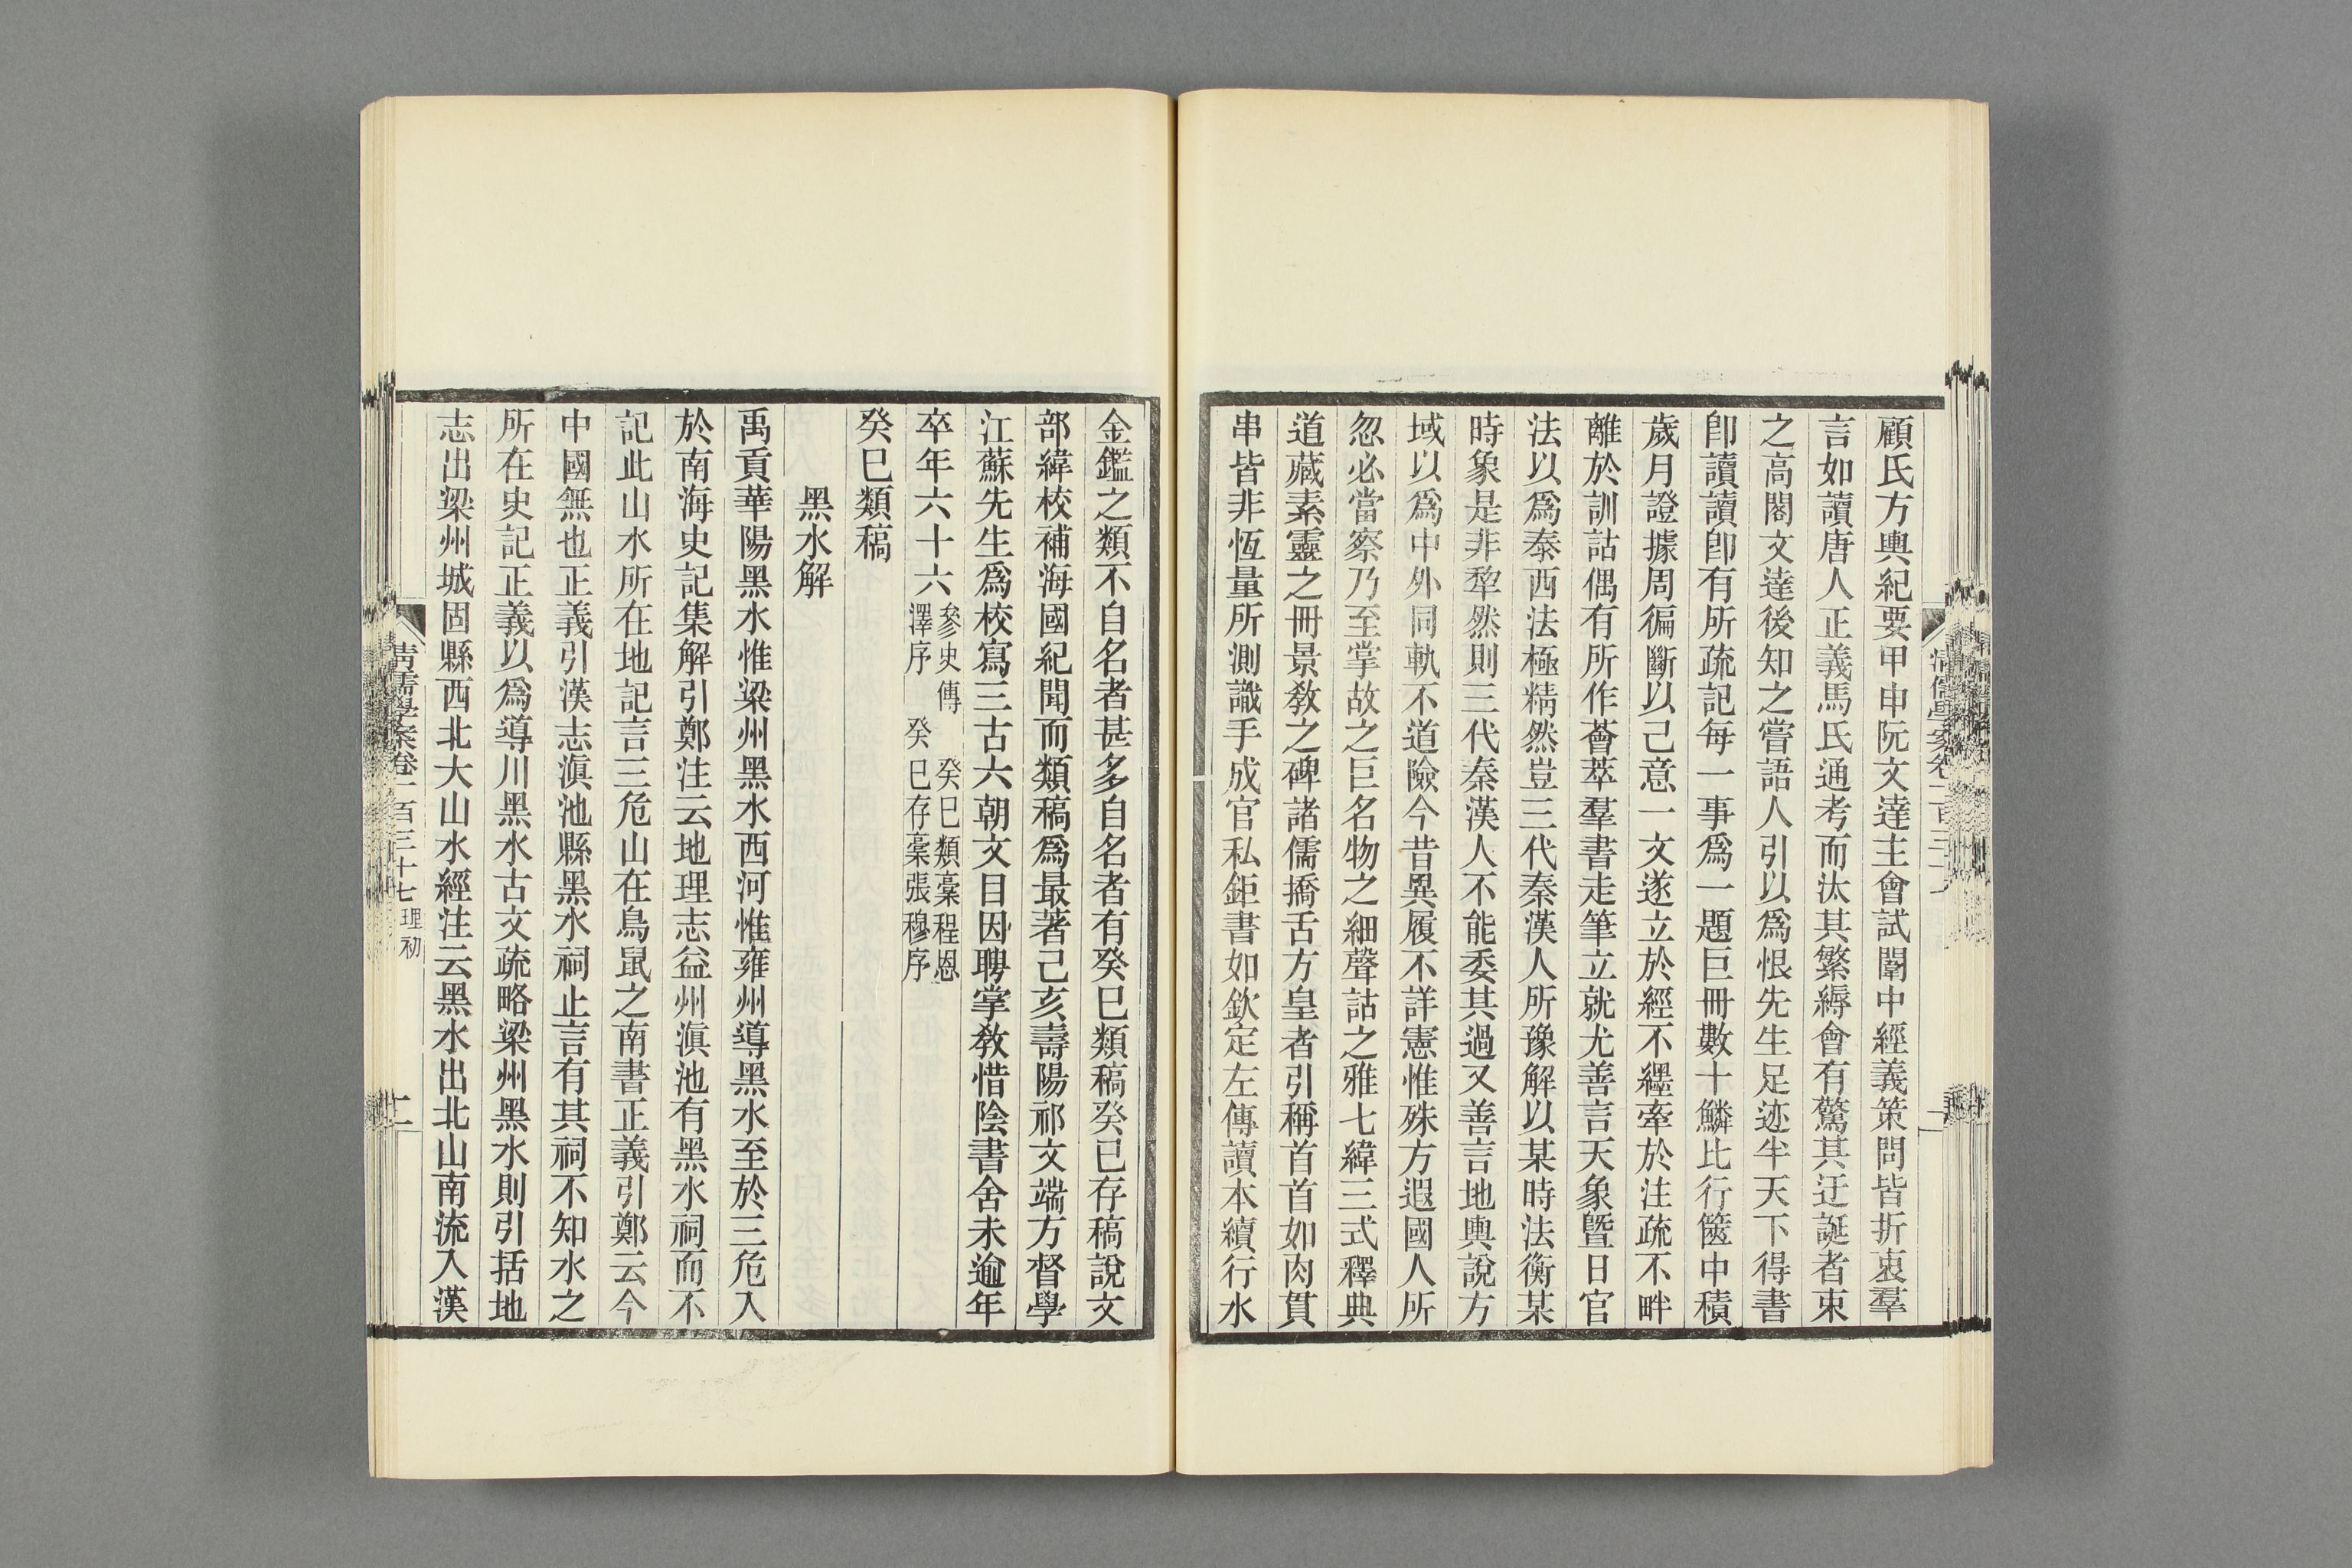 顧氏方輿紀要甲申阮文達主會試闈中經義策問皆折衷羣
言如讀唐人正義馬氏通考而汰其繁縟會有驚其迂誕者束
之高閣文達後知之嘗語人引以爲恨先生足迹半天下得書
卽讀讀卽有所疏記每一事爲一題巨冊數十鱗比行篋中積
歲月證據周徧斷以己意一文遂立於經不纆牽於注疏不畔
離於訓詁偶有所作薈萃羣書走筆立就尤善言天象曁日官
法以爲泰西法極精然豈三代秦漢人所豫解以某時法衡某
時象是非犂然則三代秦漢人不能委其過又善言地輿說方
域以爲中外同軌不道險今昔異履不詳憲惟殊方遐國人所
忽必當察乃至掌故之巨名物之細聲詁之雅七緯三式釋典
道藏素靈之冊景敎之碑諸儒撟舌方皇者引稱首首如肉貫
串皆非恆量所測識手成官私鉅書如欽定左傳讀本續行水
金鑑之類不自名者甚多自名者有癸巳類稿癸巳存稿說文
部緯校補海國紀聞而類稿爲最著己亥壽陽祁文端方督學
江蘇先生爲校寫三古六朝文目因聘掌敎惜陰書舍未逾年
卒年六十六參史傳 癸巳類稾程恩
澤序 癸巳存稾張穆序
癸巳類稿
黑水解
禹貢華陽黑水惟梁州黑水西河惟雍州導黑水至於三危入
於南海史記集解引鄭注云地理志益州滇池有黑水祠而不
記此山水所在地記言三危山在鳥鼠之南書正義引鄭云今
中國無也正義引漢志滇池縣黑水祠止言有其祠不知水之
所在史記正義以爲導川黑水古文疏略梁州黑水則引括地
志出梁州城固縣西北大山水經注云黑水出北山南流入漢
清儒學案卷一百三十七 理初
二